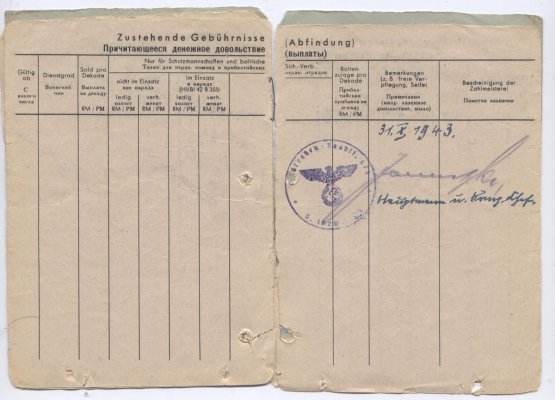 Zustehende Gebührnisse
Причитающееся денежное довольствие
Gültig ab
С какого числа
Dienstgrad
Воинский чин
Sold pro Dekade
Выплата за декаду
RM / РМ
Nur für Schutzmannschaften und baltische
Только для охран. команд и прибалтийских
nicht im Einsatz
вне наряда
ledig
холост
RM / РМ
verh.
женат
RM / РМ
im Einsatz
в наряде
(HVBl 42 B 355)
ledig
холост
RM / РМ
verh.
женат
RM / РМ
(Abfindung)
(выплаты)
Sich.-Verb.
охран. отрядов
Balten-
zulage pro
Dekade
Прибал-
тийская
прибавка за
декаду
RM / РМ
Bemerkungen
(z. B. freie Ver-
pflegung, Seife)
Примечания
(напр. казенное
довольствие, мыло)
Bescheinigung der
Zahlmeisterei
Пометки казначея
31. X. 1943.
Hauptmann u. Komp.Chef.